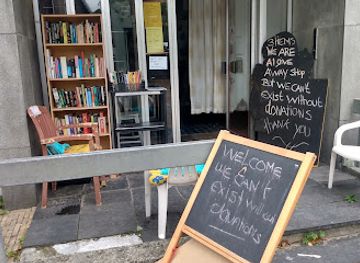 3 HEMS
WE ARE
A LOVE
AWAY Shop
BUT WE CAN'T
EXIST WITHOUT
DONATIONS
THANK YOU
WELCOME
WE CAN'T
EXIST WITHOUT
donations